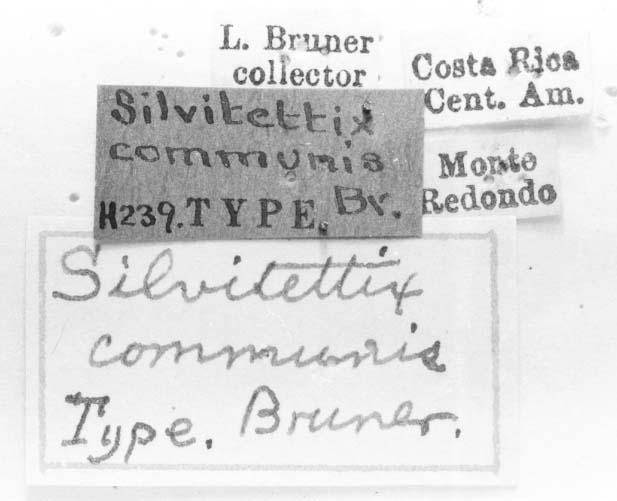 L. Bruner
collector
Costa Rica
Cent. Am.
Silvitettix
communis
H239. TYPE. Br.
Monte
Redondo
Silvitettix
communis
Type. Bruner.